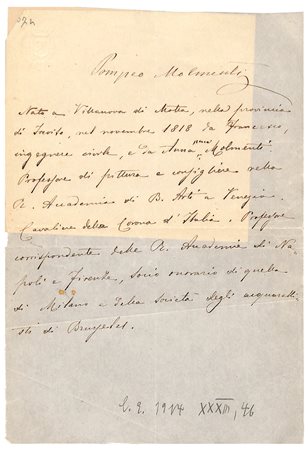 Pompeo Molmenti
Nato a Villanova di Motta, nella provincia
di Treviso, nel novembre 1818 da Francesco,
ingegnere civile, e da Anna Molmenti.
Professore di pittura e consigliere nella
R. Accademia di B. Arti a Venezia.
Cavaliere della Corona d'Italia. Professore
corrispondente delle R. Accademie di Na-
poli e Firenze, socio onorario di quella
di Milano e della Società degli acquarelli-
sti di Bruxelles.
1914 XXXIII, 46